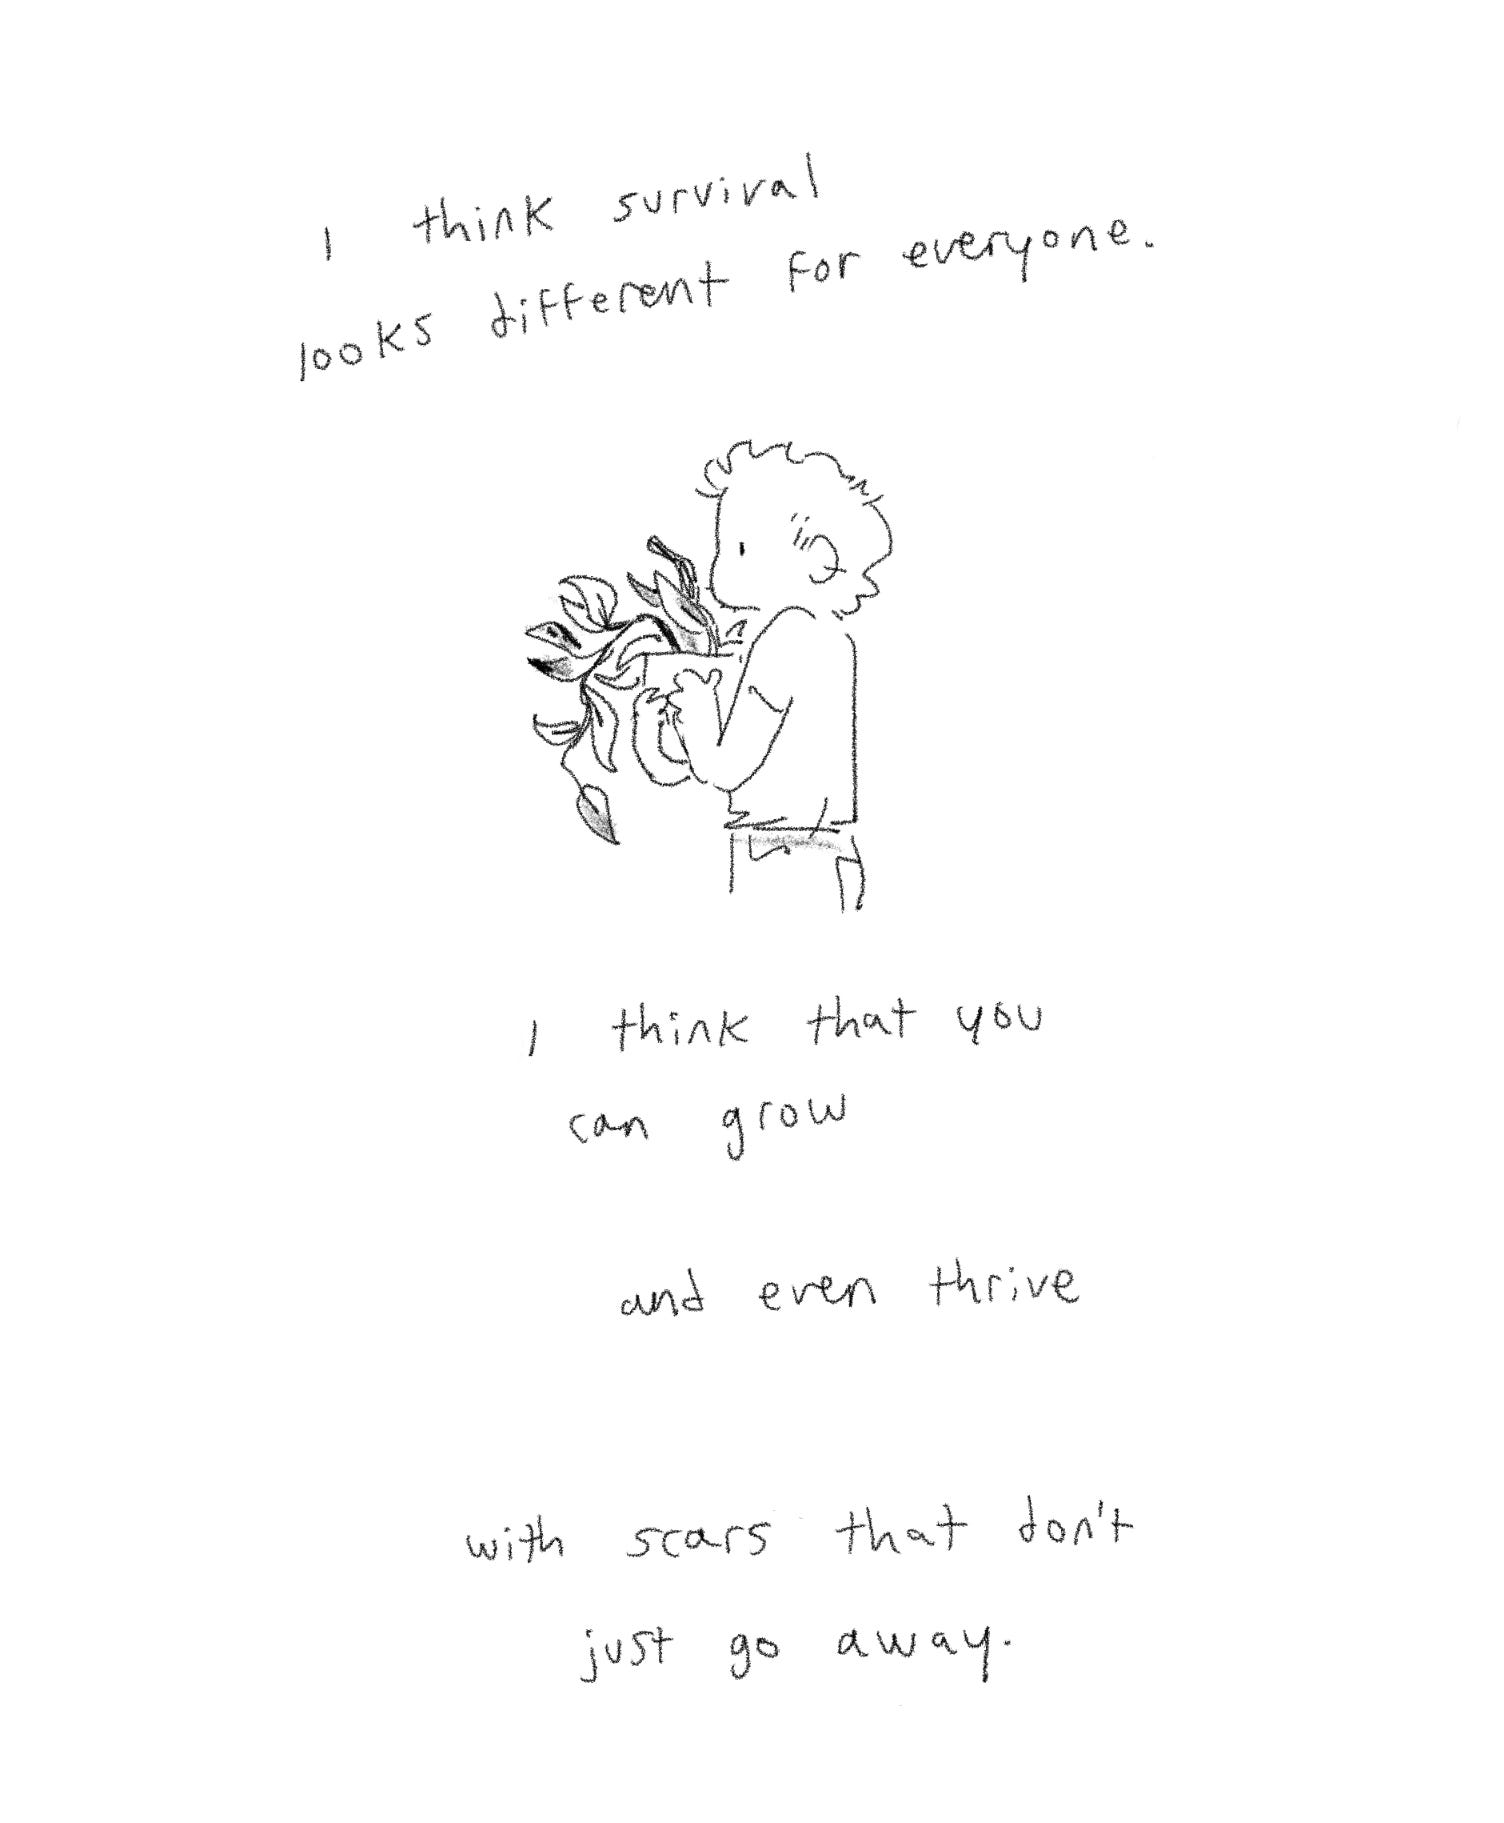 I think survival
looks different for everyone.
I think that you
can grow
and even thrive
with scars that don't
just go away.